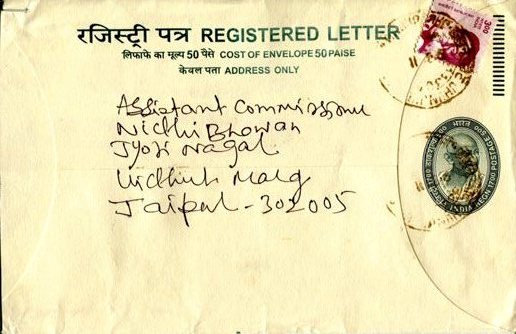 रजिस्ट्री पत्र REGISTERED LETTER
लिफाफे का मूल्य 50 पैसे COST OF ENVELOPE 50 PAISE
केवल पता ADDRESS ONLY
300
Assistant Commissione
Nidhi Bhowan
Jyoti Nagal
Vidhut Marg
Jaipur - 302005
भारत
INDIA REGN 1700 POSTAGE 300